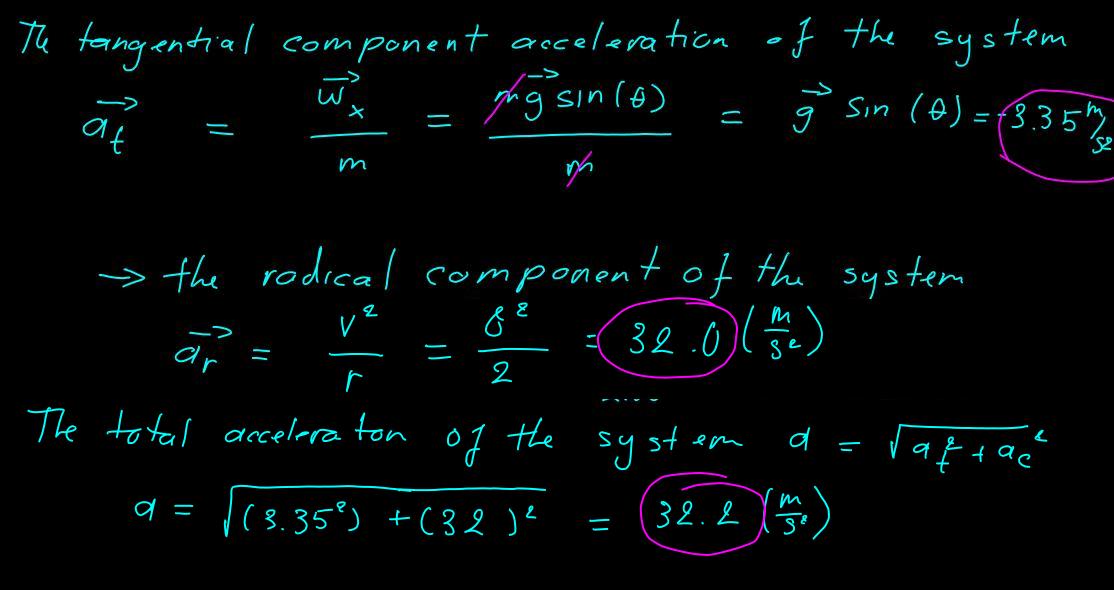 The tangential component acceleration of the system
a⃗_t = w⃗_x / m = m g⃗ sin(θ) / m = g⃗ sin (θ) = -3.35 m/s²
→ the radical component of the system
a⃗_r = v² / r = 8² / 2 = 32.0 (m/s²)
The total acceleraton of the system a = √(a_t² + a_c²)
a = √((3.35²) + (32)²) = 32.2 (m/s²)